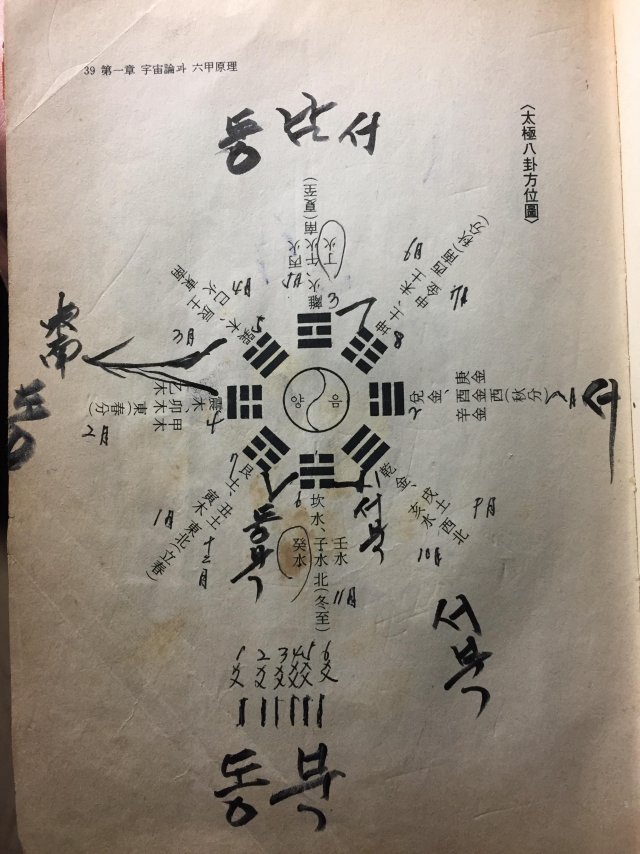 39 第一章 宇宙論과 六甲原理
〈太極八卦方位圖〉
동남서
離火、午火 南(夏至)
丙火
丁火
3
5月
坤土、
申金 西南(秋分)
未土
8
6月
7月
兌金、酉金 西(秋分)
庚金
辛金
2
서
乾金、
戌土 西北
亥水
1
9月
10月
서북
서북
坎水、子水 北(冬至)
壬水
癸水
6
11月
艮土、
丑土 東北(立春)
寅木
7
1月
十二月
동북
震木、卯木 東(春分)
甲木
乙木
4
2月
동
東南
巽木、
辰土 東南
巳火
5
3月
4月
음
양
1 2 3 4 5 6
동북